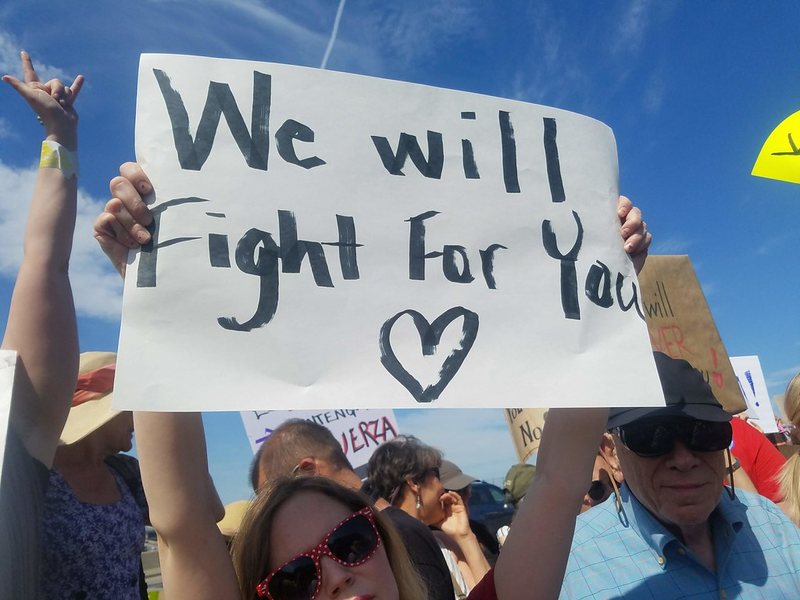 We will
Fight For You
will
!
UERZA
No
!